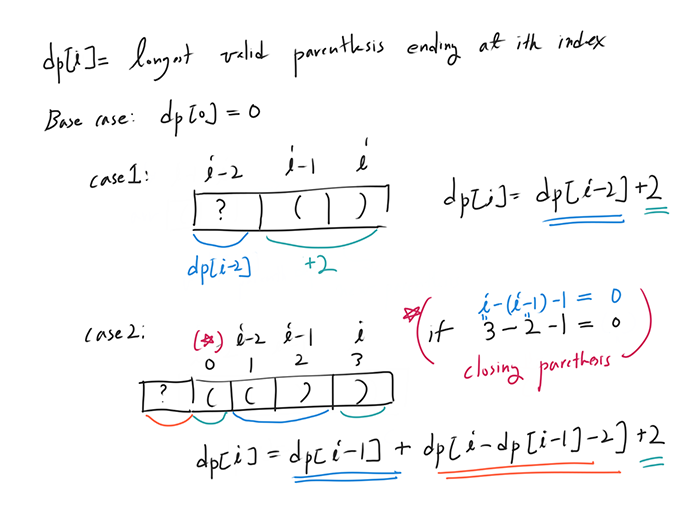 dp[i]= longest valid parenthesis ending at ith index
Base case: dp[0] = 0
case1:
i-2 i-1 i
? ( )
dp[i-2] +2
dp[i]= dp[i-2]+2
case2:
(☆) i-2 i-1 i
0 1 2 3
? ( ( ) )
☆
i-(i-1)-1 = 0
if 3-2-1 = 0
closing parethesis
dp[i] = dp[i-1] + dp[i-dp[i-1]-2] +2